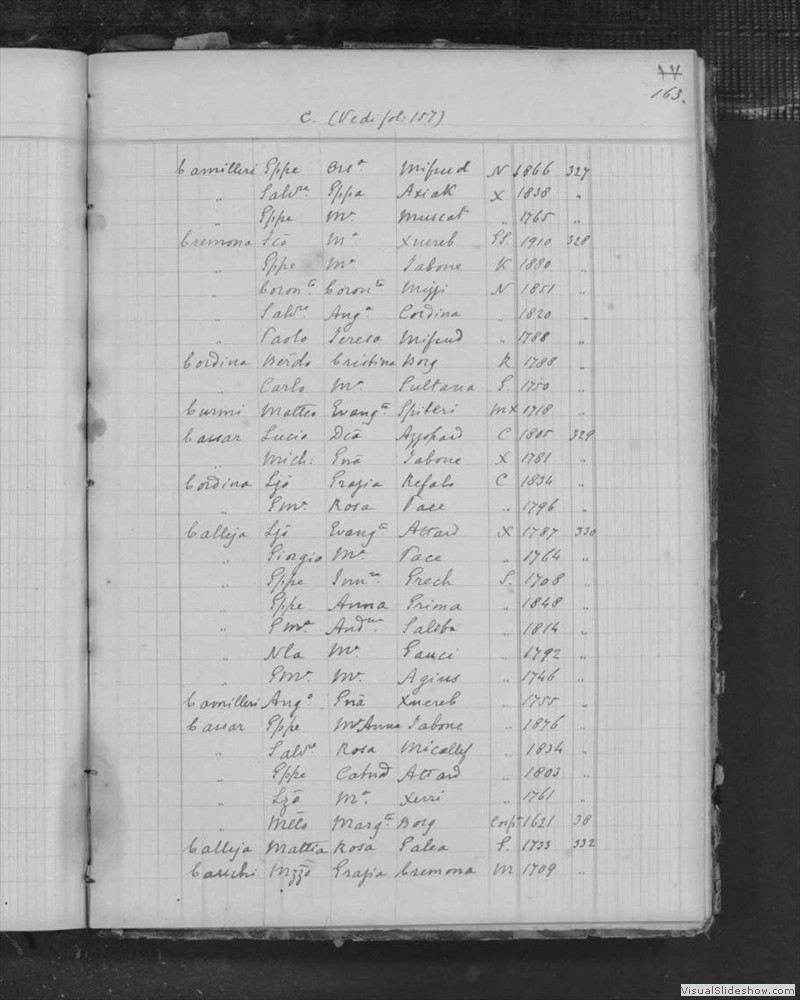 17
163.
C. (Vedi fol: 157)
Camilleri Eppe Ors.a Mifsud N 1866 327
" Salv.re Eppa Axiak X 1838 "
" Eppe M.a Muscat " 1765 "
Cremona M.a Xuereb 1910 328
" Eppe M.a Tabone K 1880 "
" Coron.to Coron.ta N 1851 "
" Salv.re Ang.a Cordina " 1820 "
" Paolo Teresa Mifsud " 1788 "
Cordina Berdo Cristina Borg K 1788 "
" Carlo M.a Sultana 1750 "
Curmi Matteo Evang.ta Spiteri MX 1718 "
Cassar Lucio Azzopard C 1805 329
" Mich: Tabone X 1781 "
Cordina Ljō Grazia Refalo C 1834 "
" Rosa Pace " 1796 "
Calleja Ljō Evang.ta Attard X 1787 330
" Giorgio M.a Pace " 1764 "
" Eppe Grech 1708 "
" Eppe Anna Grima " 1848 "
" Saliba " 1814 "
" Nla M.a Gauci " 1792 "
" M.a Agius " 1746 "
Camilleri Ang.o Xuereb " 1755 "
Cassar Eppe M.a Anna Tabone " 1876 "
" Salv.re Rosa Micallef " 1834 "
" Eppe Attard " 1803 "
" Ljō M.a Xerri " 1761 "
" Marg.ta Borg 1621 38
Calleja Mattia Rosa Galea 1733 332
Cauchi Grazia Cremona M 1709 "
VisualSlideshow.com